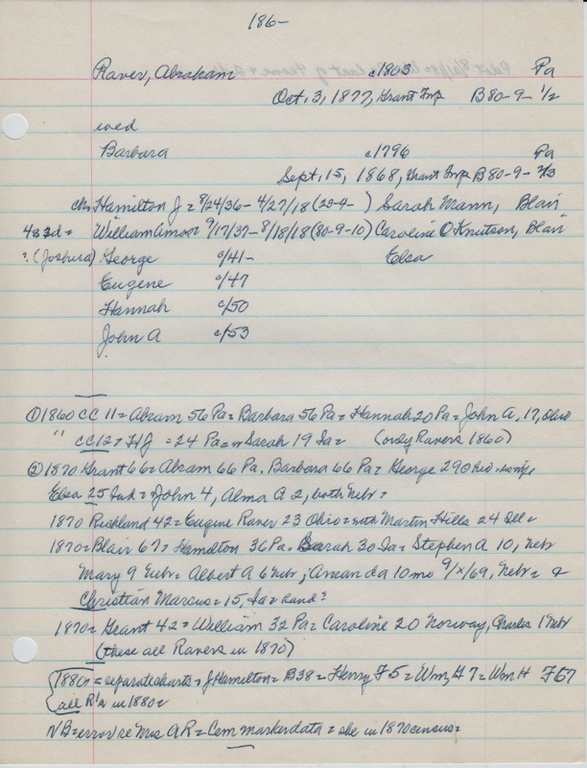 186-
Raver, Abraham c1803 Pa
Oct, 3, 1877, Grant Twp B80-9-1/2
wed
Barbara c/1796 Pa
Sept, 15, 1868, Grant Twp B80-9-2/3
chn Hamilton J = 8/24/36-4/27/18 (29-4- ) Sarah Mann, Blair
483d = William Amos 9/17/37-8/18/18 (80-9-10) Caroline O Knutson, Blair
? (Joshua) George c/41- Elsa
Eugene c/47
Hannah c/50
John A c/53
① 1860 CC 11 = Abram 56 Pa = Barbara 56 Pa = Hannah 20 Pa = John A, 17, Ohio
" CC12 = HJ = 24 Pa = Sarah 19 Ia = (only Ravers 1860)
② 1870 Grant 66 = Abram 66 Pa. Barbara 66 Pa = George 29 Ohio =
Elsa 25 Ind = John 4, Alma A 2, both Nebr =
1870 Richland 42 = Eugene Raver 23 Ohio = with Martin Hills 24 Ill =
1870 = Blair 67 = Hamilton 36 Pa = Sarah 30 Ia = Stephen A 10, Nebr
Mary 9 Nebr = Albert A 6 Nebr; Amanda 10 mo 9/x/69, Nebr = &
Christian Marcus = 15, Ia = hand?
1870 = Grant 42 = William 32 Pa = Caroline 20 Norway, Charles 1 Nebr
(these all Ravers in 1870)
1880 = separate charts = J Hamilton = B38 = Henry F5 = Wm, H 7 = Wm H F67
all R's in 1880 =
NB = error re Mrs AR = Cem marker data = she in 1870 census =